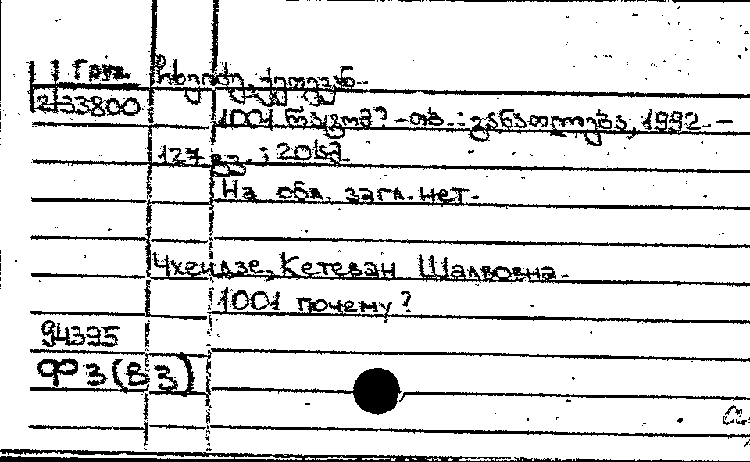 Груз. ჩხეიძე, ქეთევან
2/33800
1001 რატომ? - თბ. : განათლება, 1992. -
127 გვ. ; 20 სმ
На обл. загл. нет.
Чхеидзе, Кетеван Шалвовна.
1001 почему?
94395
ФЗ (ВЗ)